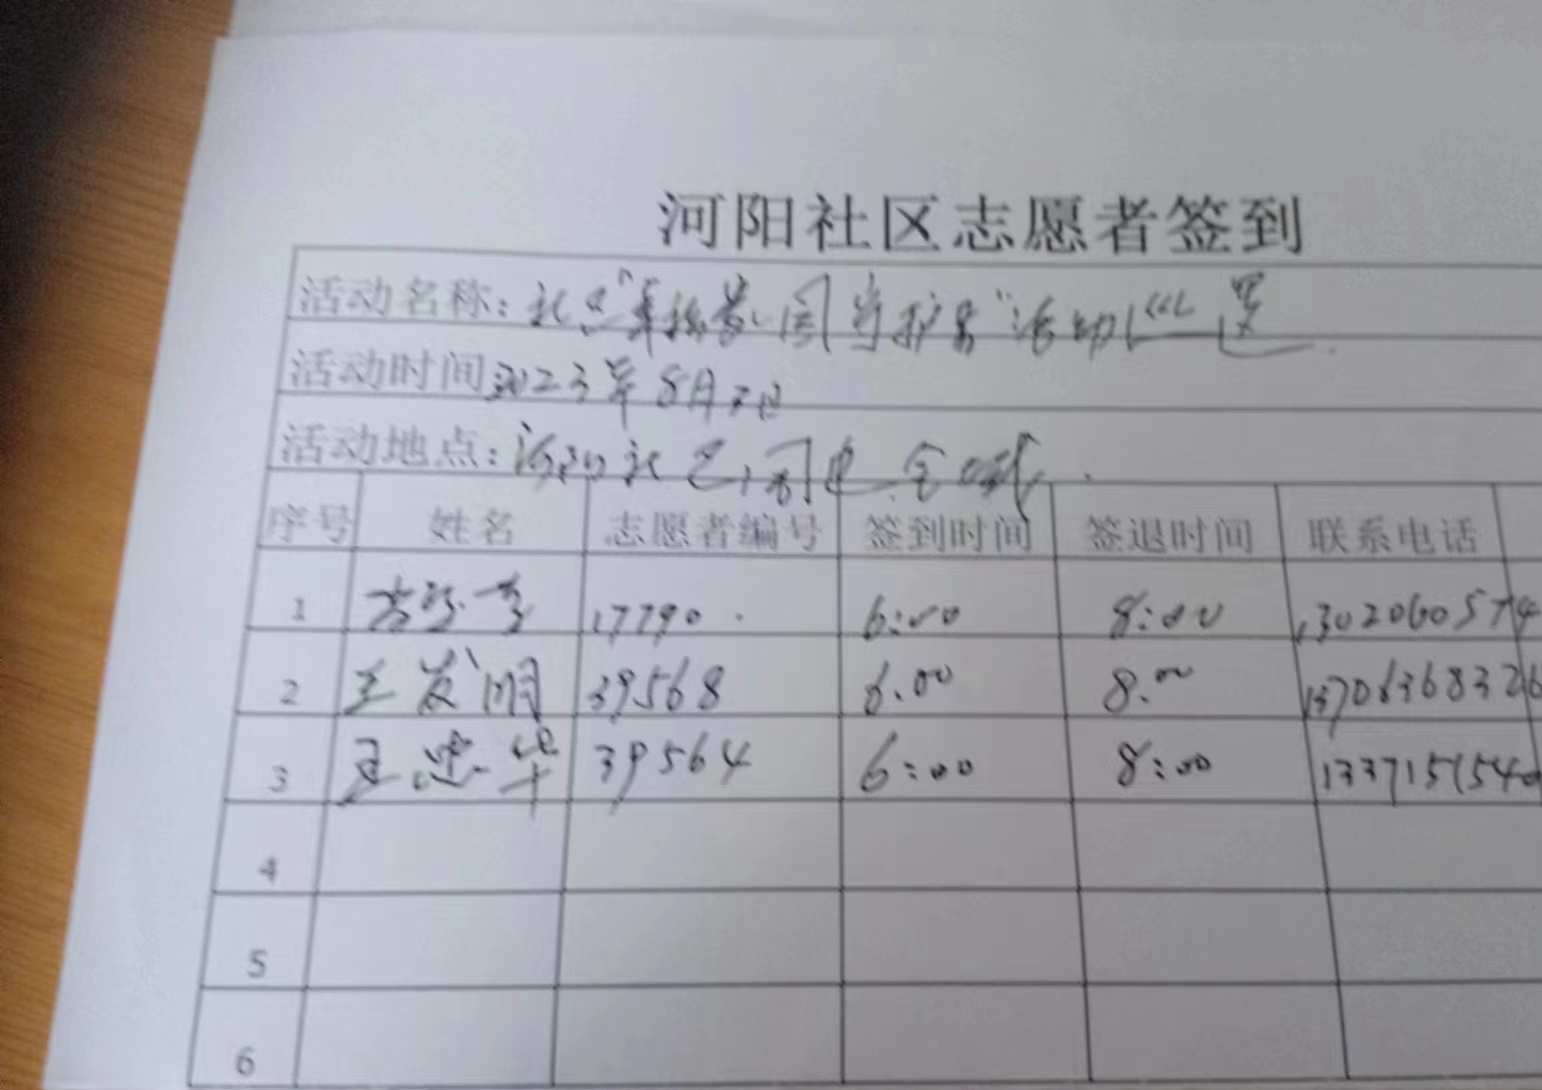 河阳社区志愿者签到
活动名称：社区"
活动时间2023年8月2日
活动地点：河阳社区
序号 姓名 志愿者编号 签到时间 签退时间 联系电话
1 17790 6:00 8:00 13020600574
2 王发明 39568 6.00 8.00 13706368326
3 王忠华 39564 6:00 8:00 1337151540
4
5
6